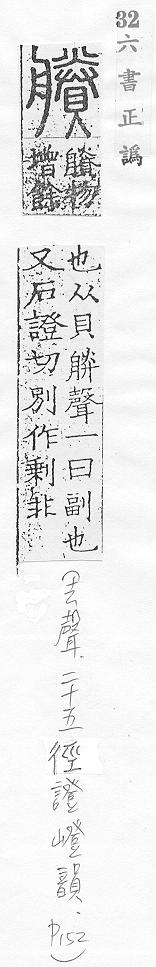 32 六書正譌
賸
賸物
增餘
也从貝朕聲一曰副也
又石證切別作剩非
(去聲 二十五徑證嶝韻. P152)